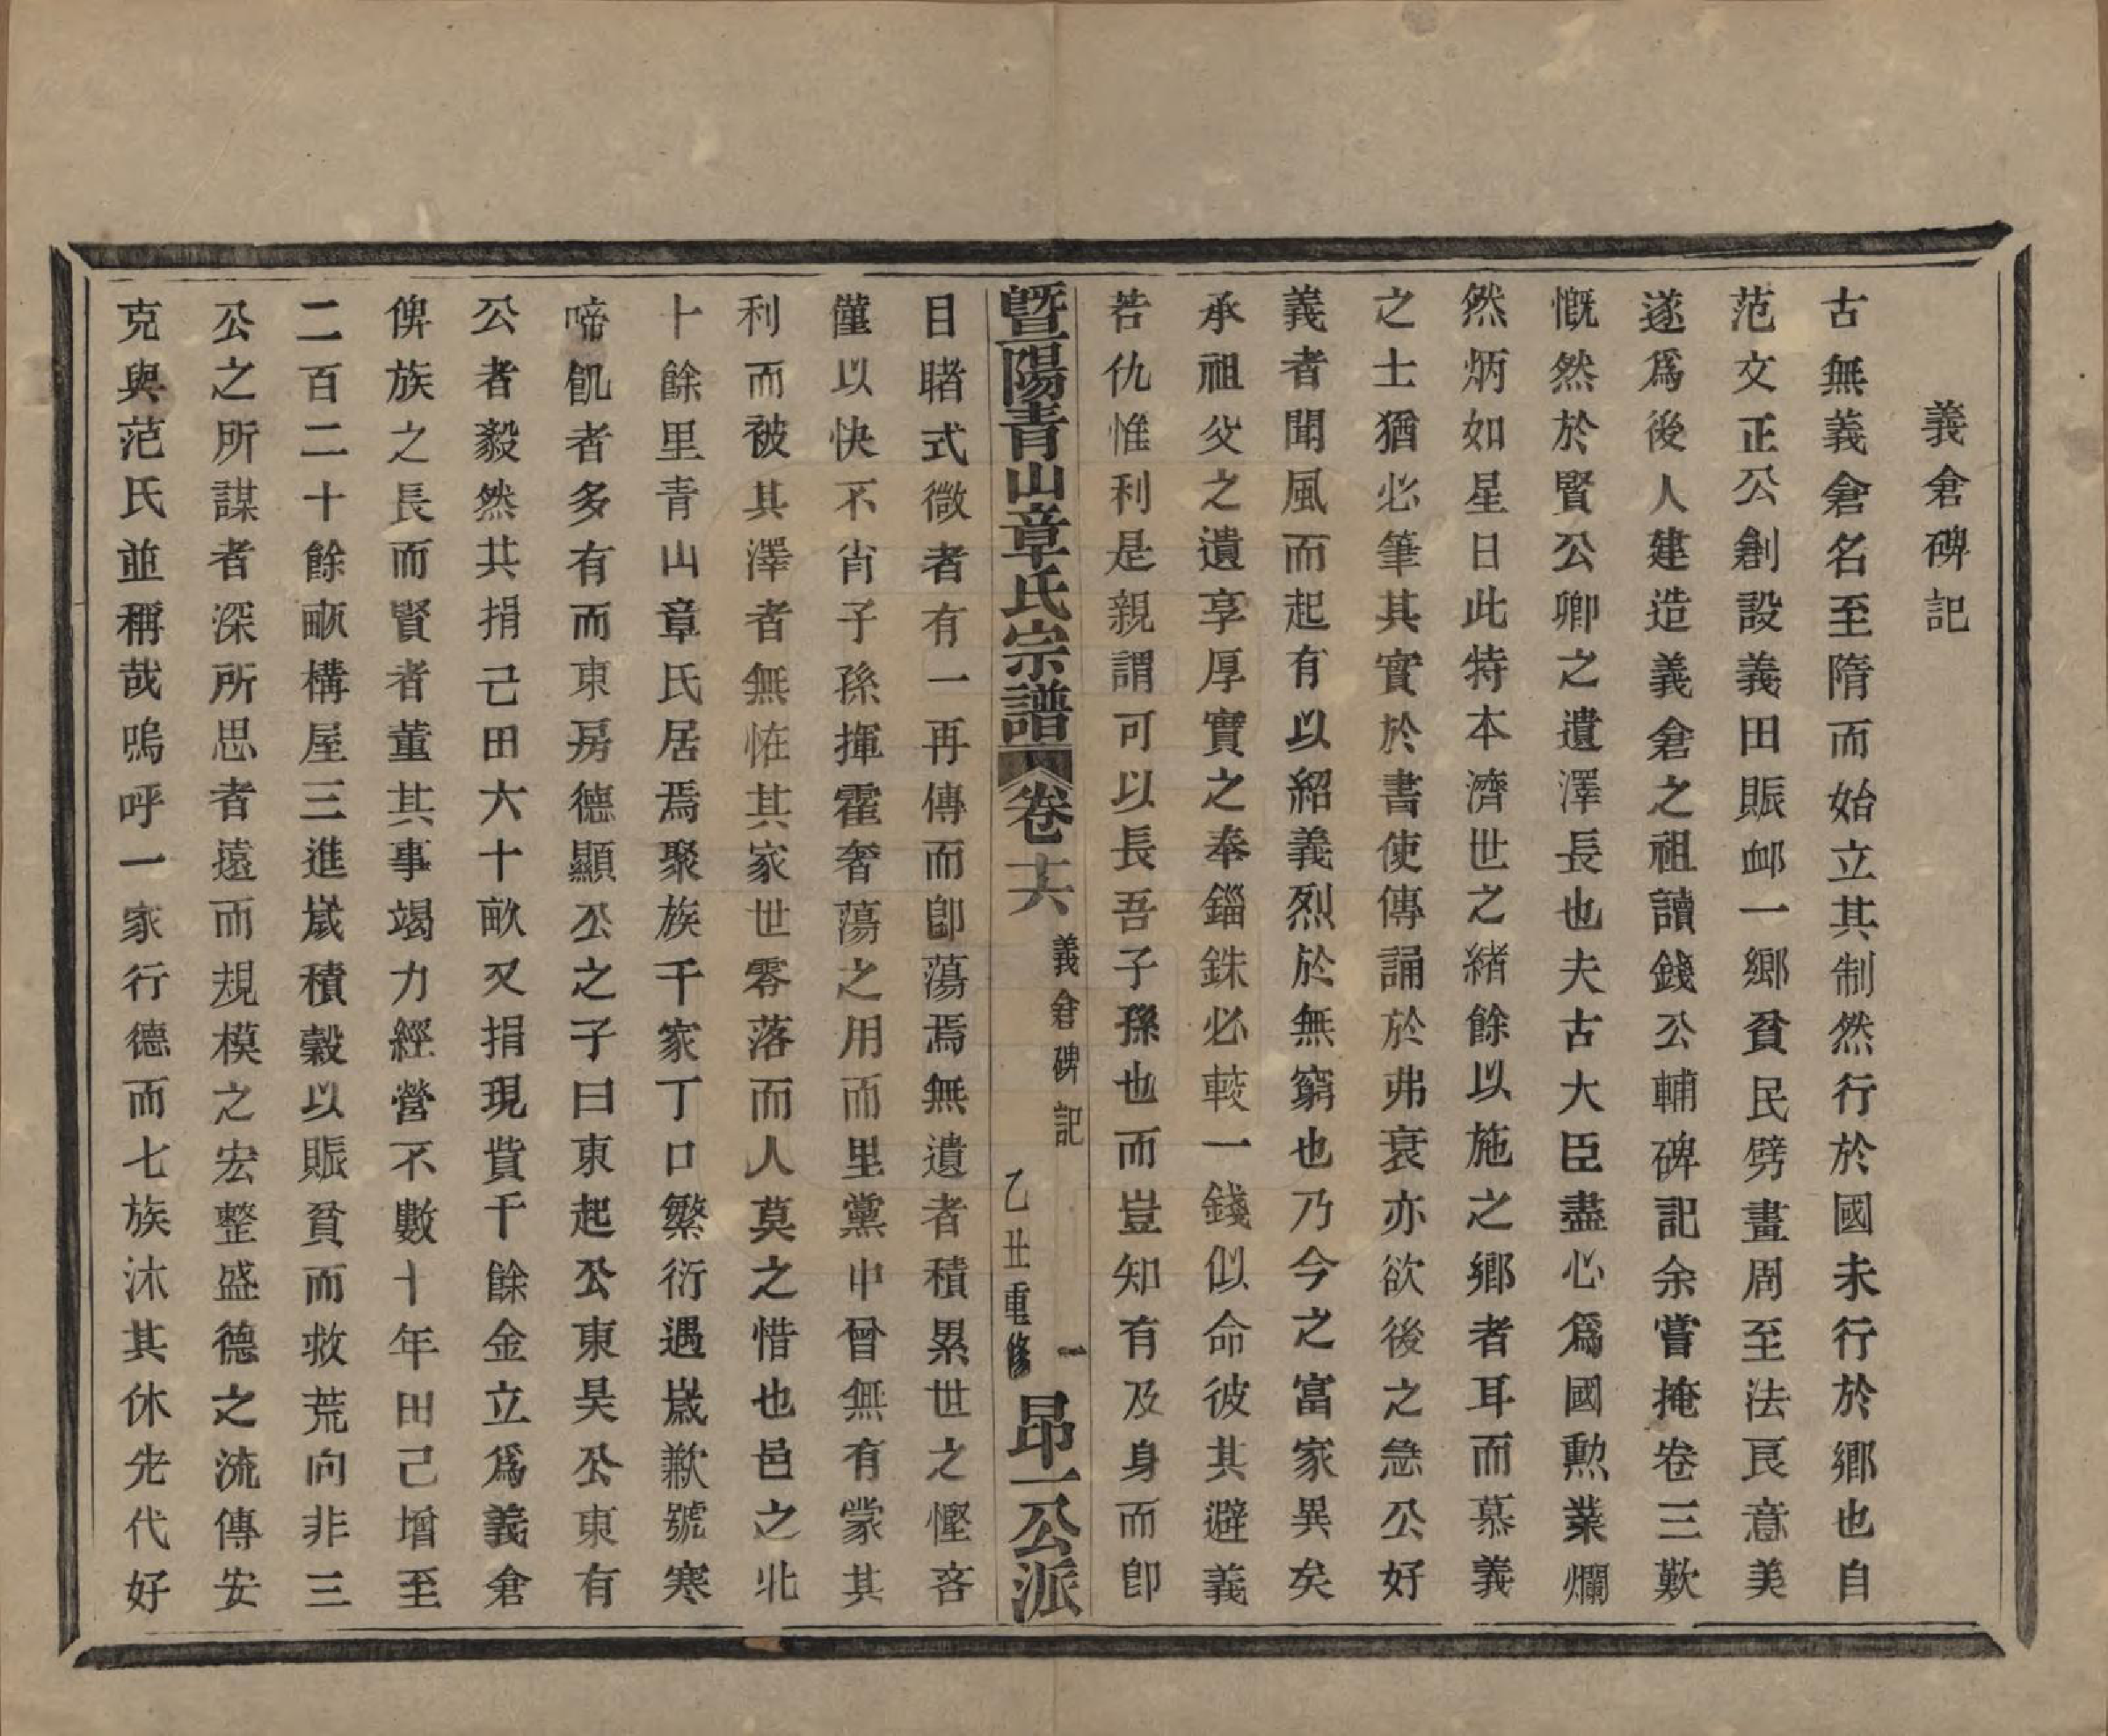 義倉碑記
古無義倉名至隋而始立其制然行於國未行於鄉也自
范文正公創設義田賑卹一鄉貧民劈畫周至法良意美
遂爲後人建造義倉之祖讀錢公輔碑記余嘗掩卷三歎
慨然於賢公卿之遺澤長也夫古大臣盡心爲國勲業爛
然炳如星日此特本濟世之緒餘以施之鄉者耳而慕義
之士猶必筆其實於書使傳誦於弗衰亦欲後之急公好
義者聞風而起有以紹義烈於無窮也乃今之富家異矣
承祖父之遺享厚實之奉錙銖必較一錢似命彼其避義
若仇惟利是親謂可以長吾子孫也而豈知有及身而卽
暨陽青山章氏宗譜 卷十六 義倉碑記 一 乙丑重修 昂一公派
目睹式微者有一再傳而卽蕩焉無遺者積累世之慳吝
僅以快不肖子孫揮霍奢蕩之用而里黨中曾無有蒙其
利而被其澤者無怪其家世零落而人莫之惜也邑之北
十餘里青山章氏居焉聚族千家丁口繁衍遇歲歉號寒
啼飢者多有而東房德顯公之子曰東起公東昊公東有
公者毅然共捐己田六十畝又捐現貲千餘金立爲義倉
俾族之長而賢者董其事竭力經營不數十年田已增至
二百二十餘畝構屋三進歲積穀以賑貧而救荒向非三
公之所謀者深所思者遠而規模之宏整盛德之流傳安
克與范氏並稱哉嗚呼一家行德而七族沐其休先代好